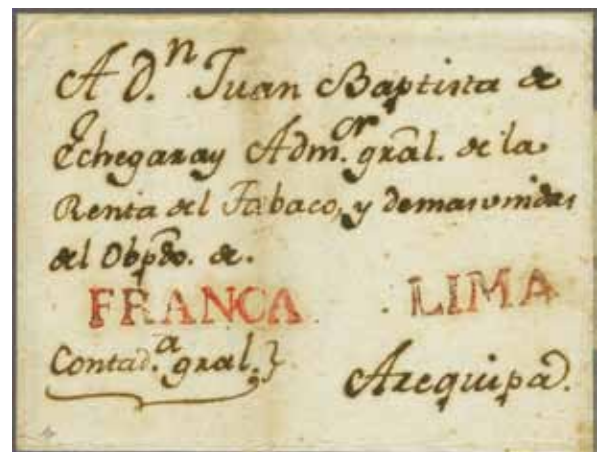 A D.ⁿ Juan Baptista de
Echegaray Adm.ᵒʳ gral. de la
Renta del Tabaco, y demas unidas
del Obpdo. de.
FRANCA LIMA
Contad.ª gral.} Arequipa.